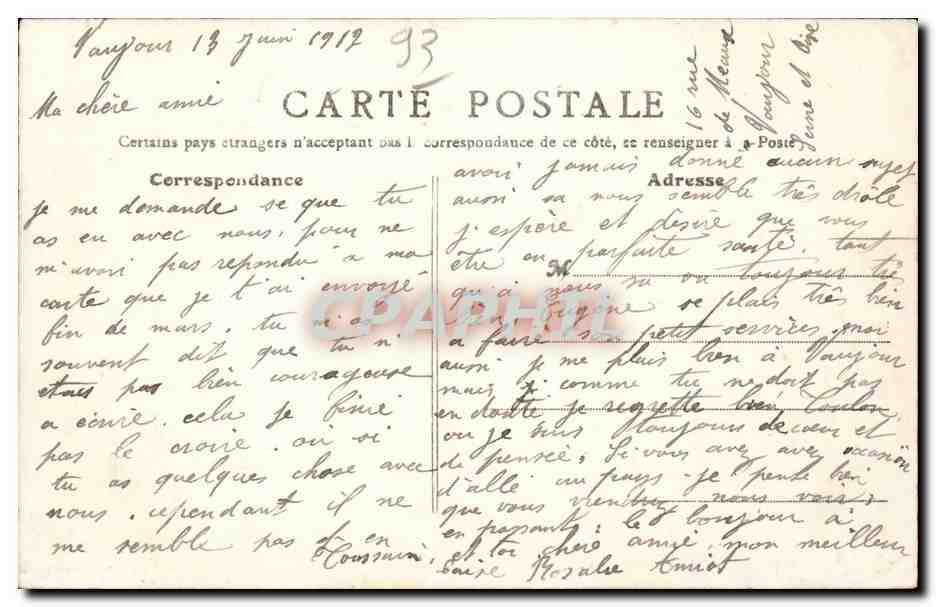 Vaujour 13 Juin 1912
93
16 rue
de Meaux
Vaujour
Seine et Oise
Ma chère amie
CARTE POSTALE
Certains pays étrangers n'acceptant pas la correspondance de ce côté, se renseigner à la Poste
Correspondance
Adresse
je me demande se que tu
as eu avec nous, pour ne
m'avoir pas repondu a ma
carte que je t'ai envoyé
fin de mars. tu m'as
souvent dit que tu n'
etais pas bien courageuse
a ecrire. cela je finie
pas le croire. ou si
tu as quelques chose avec
nous. cependant il ne
me semble pas d'en
avoir jamais donné aucun sujet
aussi sa nous semble très drôle
j'espère et desire que vous
être en parfaite santé. tant
M
qu'a nous sa va toujour très
bien Eugène se plais très bien
a faire son petit services, moi
aussi je me plais bien à Vaujour
mais si comme tu ne doit pas
en douté je regrette bien Toulon
ou je suis toujours de cœur et
de pensée, Si vous avez avez occasion
d'allé au pays je pense bien
que vous viendrez nous voir,
en passants: le bonjour à
Toussain, et toi chère amie, mon meilleur
baise Rosalie Amiot
CPAPHIL